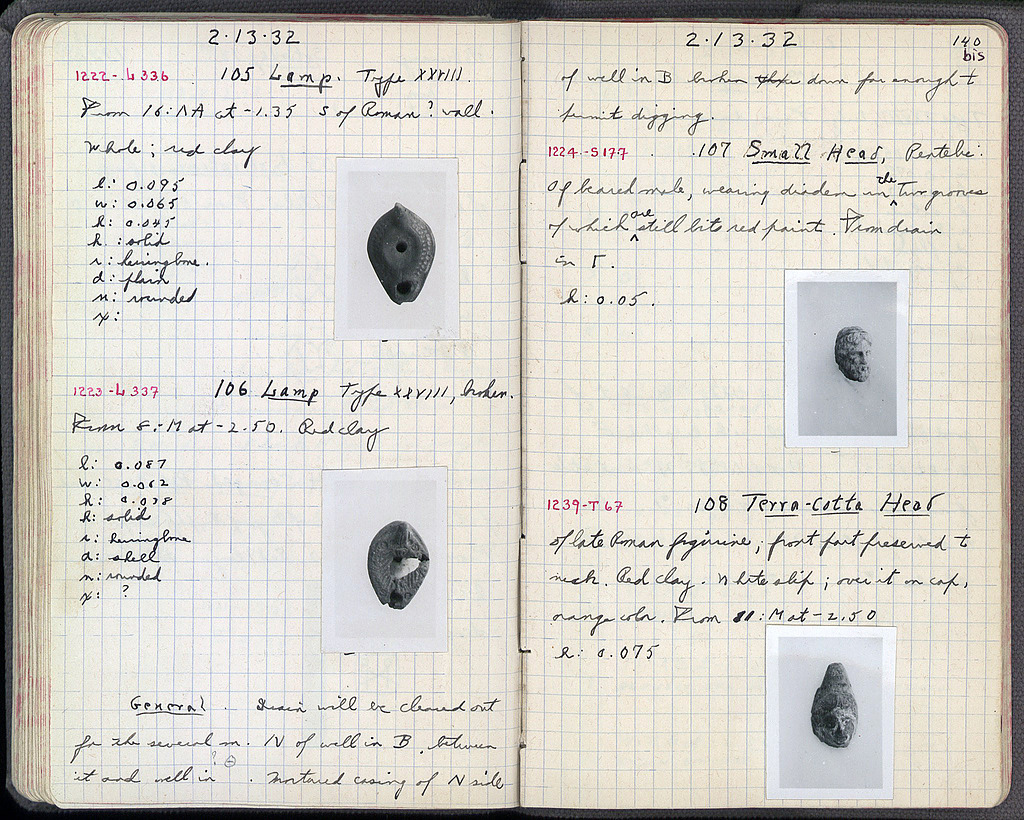 2·13·32
1222-L336 105 Lamp. Type XXVIII.
From 16:ΛA at -1.35 S of Roman? wall.
Whole; red clay
l: 0.095
w: 0.065
h: 0.045
h : solid
r: herringbone.
d: plain
n: rounded
x:
1223-L337 106 Lamp Type XXVIII, broken.
From 8:M at -2.50. Red clay
l: 0.087
w: 0.062
h: 0.038
h: solid
r: herringbone
d: shell
n: rounded
x: ?
General. Drain will be cleared out
for the several m. N of well in B, between
it and well in ? Θ. Mortared casing of N side
2·13·32
140
bis
of well in B broken down far enough to
permit digging.
1224-S177 107 Small Head, Pentelic.
Of beared male, wearing diadem in the two grooves
of which are still bits red paint. From drain
in Γ.
h: 0.05.
1239-T67 108 Terra-cotta Head
of late Roman figurine; front part preserved to
neck. Red clay. White slip; over it on cap,
orange color. From 11:M at -2.50
h: 0.075